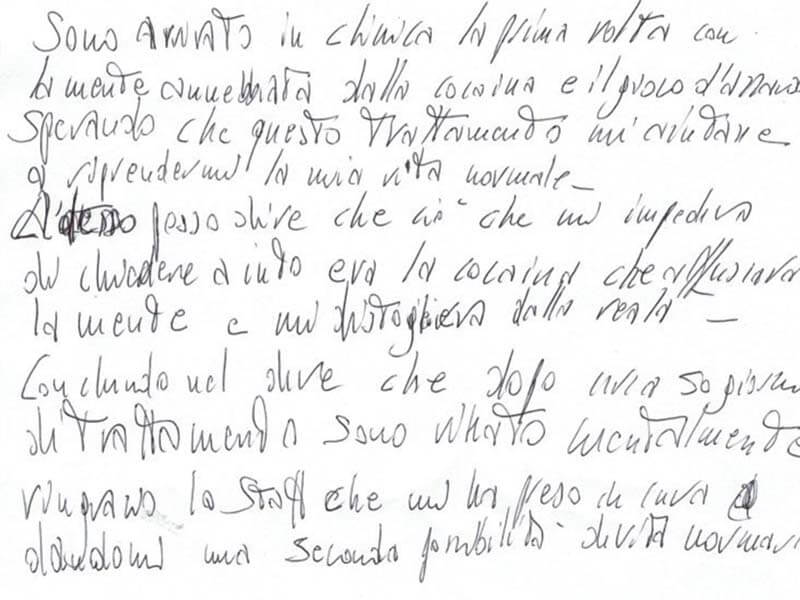 Sono arrivato in clinica la prima volta con
la mente annebbiata dalla cocaina e il gioco d'azzardo
sperando che questo trattamento mi aiutare
a riprendermi la mia vita normale_
Adesso posso dire che ciò che mi impediva
di chiedere aiuto era la cocaina che offuscava
la mente e mi distoglieva dalla realtà_
Concludo nel dire che dopo
di trattamento sono mentalmente
ringrazio lo staff che mi ha preso in cura
dandomi una seconda possibilità di vita